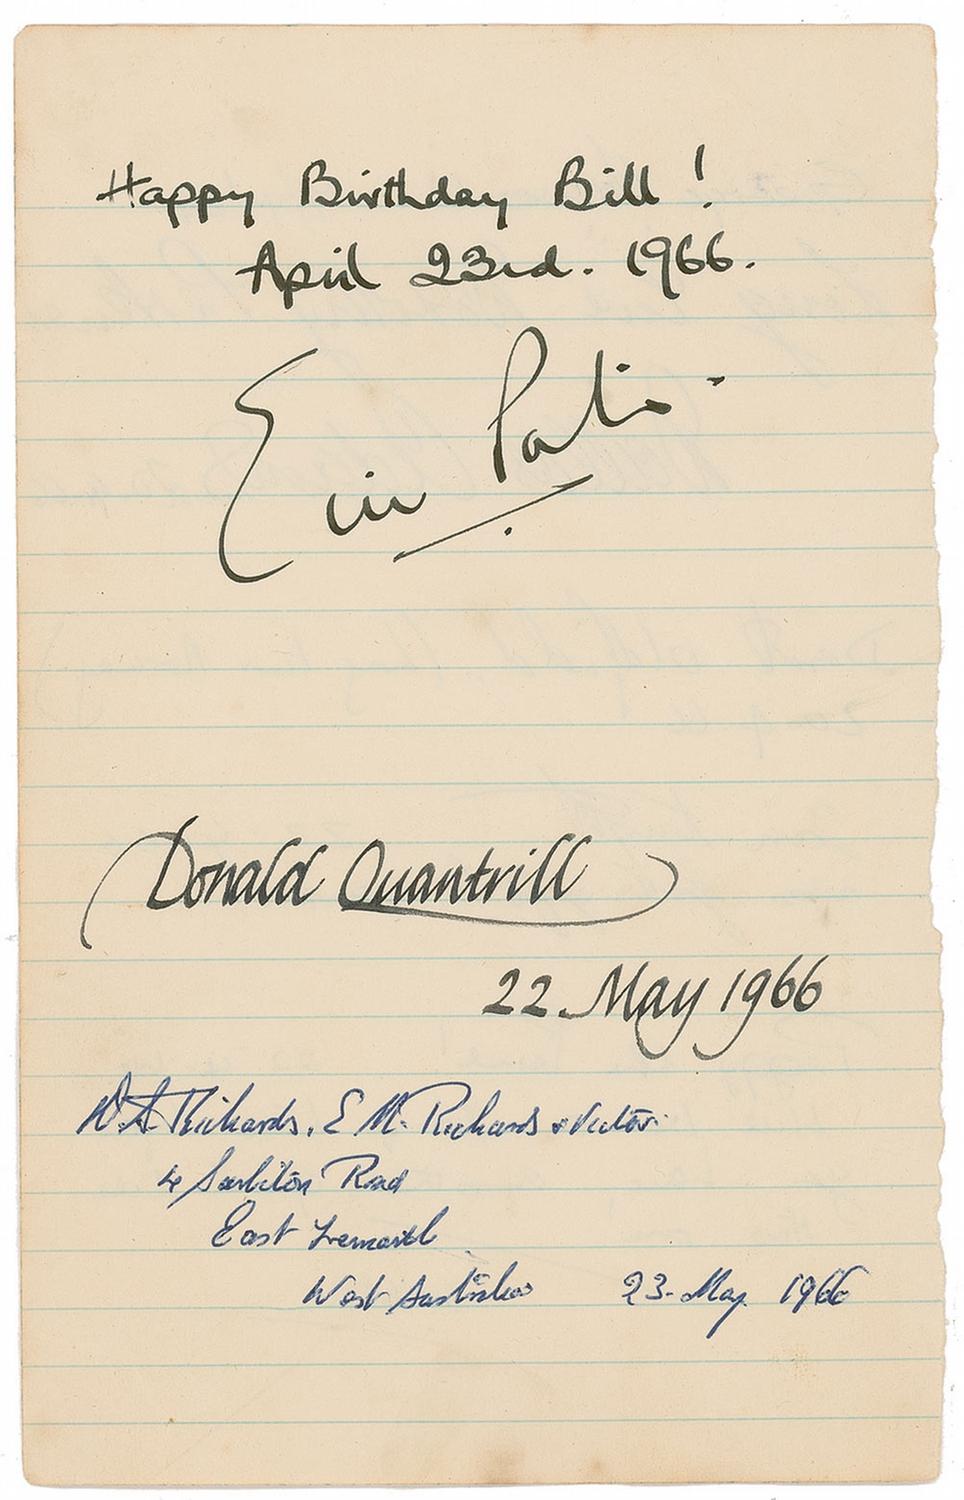 Happy Birthday Bill !
April 23rd. 1966.
Donald Quantrill
22 May 1966
W.A. Richards, E M. Richards & Victor.
4 Surbiton Road
East Fremantle
West Australia 23. May 1966